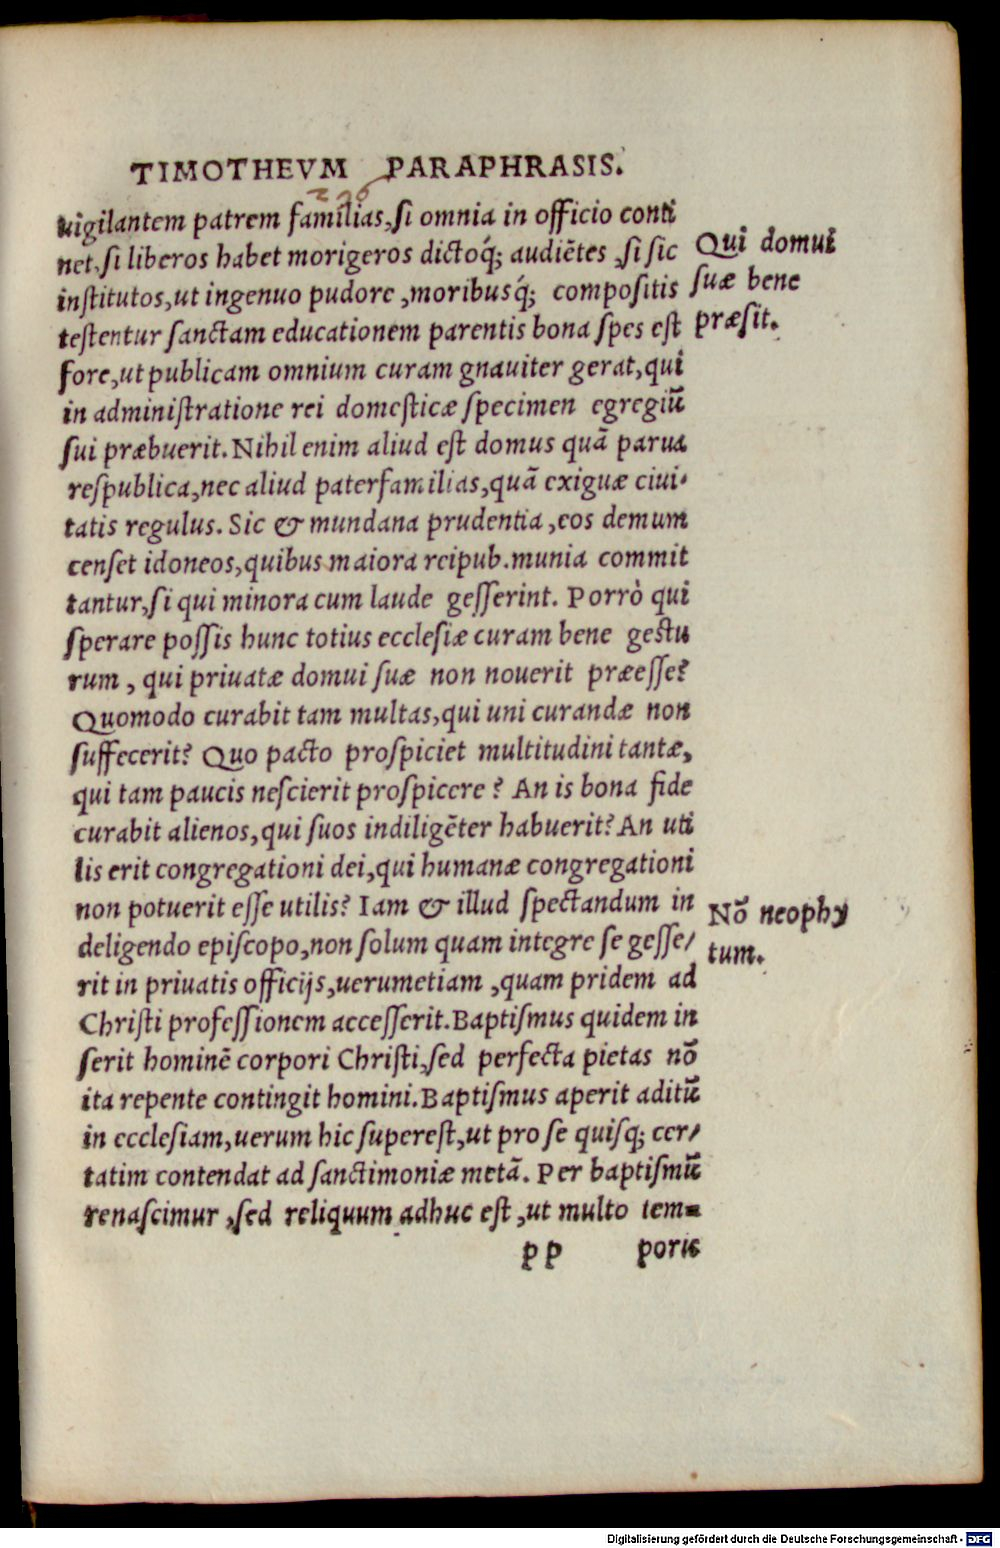 TIMOTHEVM PARAPHRASIS.
uigilantem patrem familias, si omnia in officio conti
net, si liberos habet morigeros dictoq́; audiẽtes, si sic
institutos, ut ingenuo pudore, moribusq́; compositis
testentur sanctam educationem parentis bona spes est
fore, ut publicam omnium curam gnauiter gerat, qui
in administratione rei domesticæ specimen egregiũ
sui præbuerit. Nihil enim aliud est domus quã parua
respublica, nec aliud paterfamilias, quã exiguæ ciui-
tatis regulus. Sic & mundana prudentia, eos demum
censet idoneos, quibus maiora reipub. munia commit
tantur, si qui minora cum laude gesserint. Porrò qui
sperare possis hunc totius ecclesiæ curam bene gestu
rum, qui priuatæ domui suæ non nouerit præesse?
Quomodo curabit tam multas, qui uni curandæ non
suffecerit? Quo pacto prospiciet multitudini tantæ,
qui tam paucis nescierit prospicere? An is bona fide
curabit alienos, qui suos indiligẽter habuerit? An uti
lis erit congregationi dei, qui humanæ congregationi
non potuerit esse utilis? Iam & illud spectandum in
deligendo episcopo, non solum quam integre se gesse/
rit in priuatis officijs, uerumetiam, quam pridem ad
Christi professionem accesserit. Baptismus quidem in
serit hominẽ corpori Christi, sed perfecta pietas nõ
ita repente contingit homini. Baptismus aperit aditũ
in ecclesiam, uerum hic superest, ut pro se quisq; cer/
tatim contendat ad sanctimoniæ metã. Per baptismũ
renascimur, sed reliquum adhuc est, ut multo tem-
pp poris
Qui domui
suæ bene
præsit.
Nõ neophy
tum.
Digitalisierung gefördert durch die Deutsche Forschungsgemeinschaft - DFG